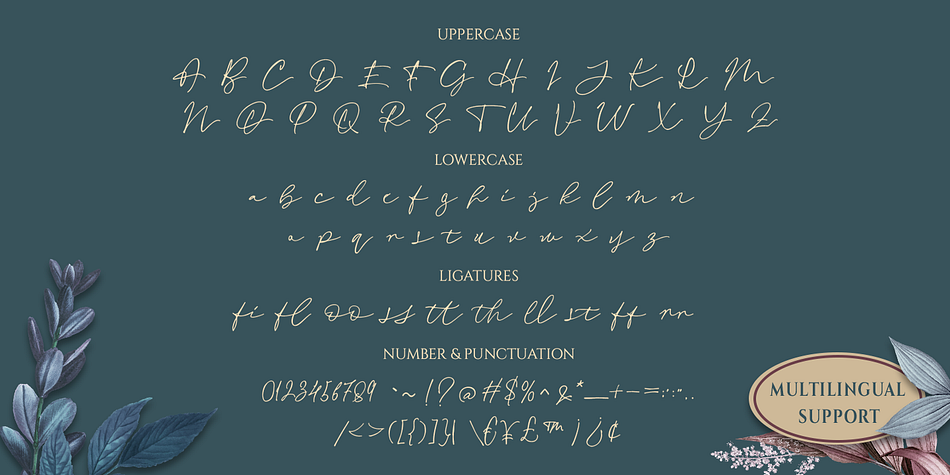 UPPERCASE
A B C D E F G H I J K L M
N O P Q R S T U V W X Y Z
LOWERCASE
a b c d e f g h i j k l m n
o p q r s t u v w x y z
LIGATURES
fi fl oo ss tt th ll st ff rr
NUMBER & PUNCTUATION
0123456789 `~!?@#$%^&*_+-=:;"..
/<>([{)]}| \€¥£™¡¿¢
MULTILINGUAL
SUPPORT